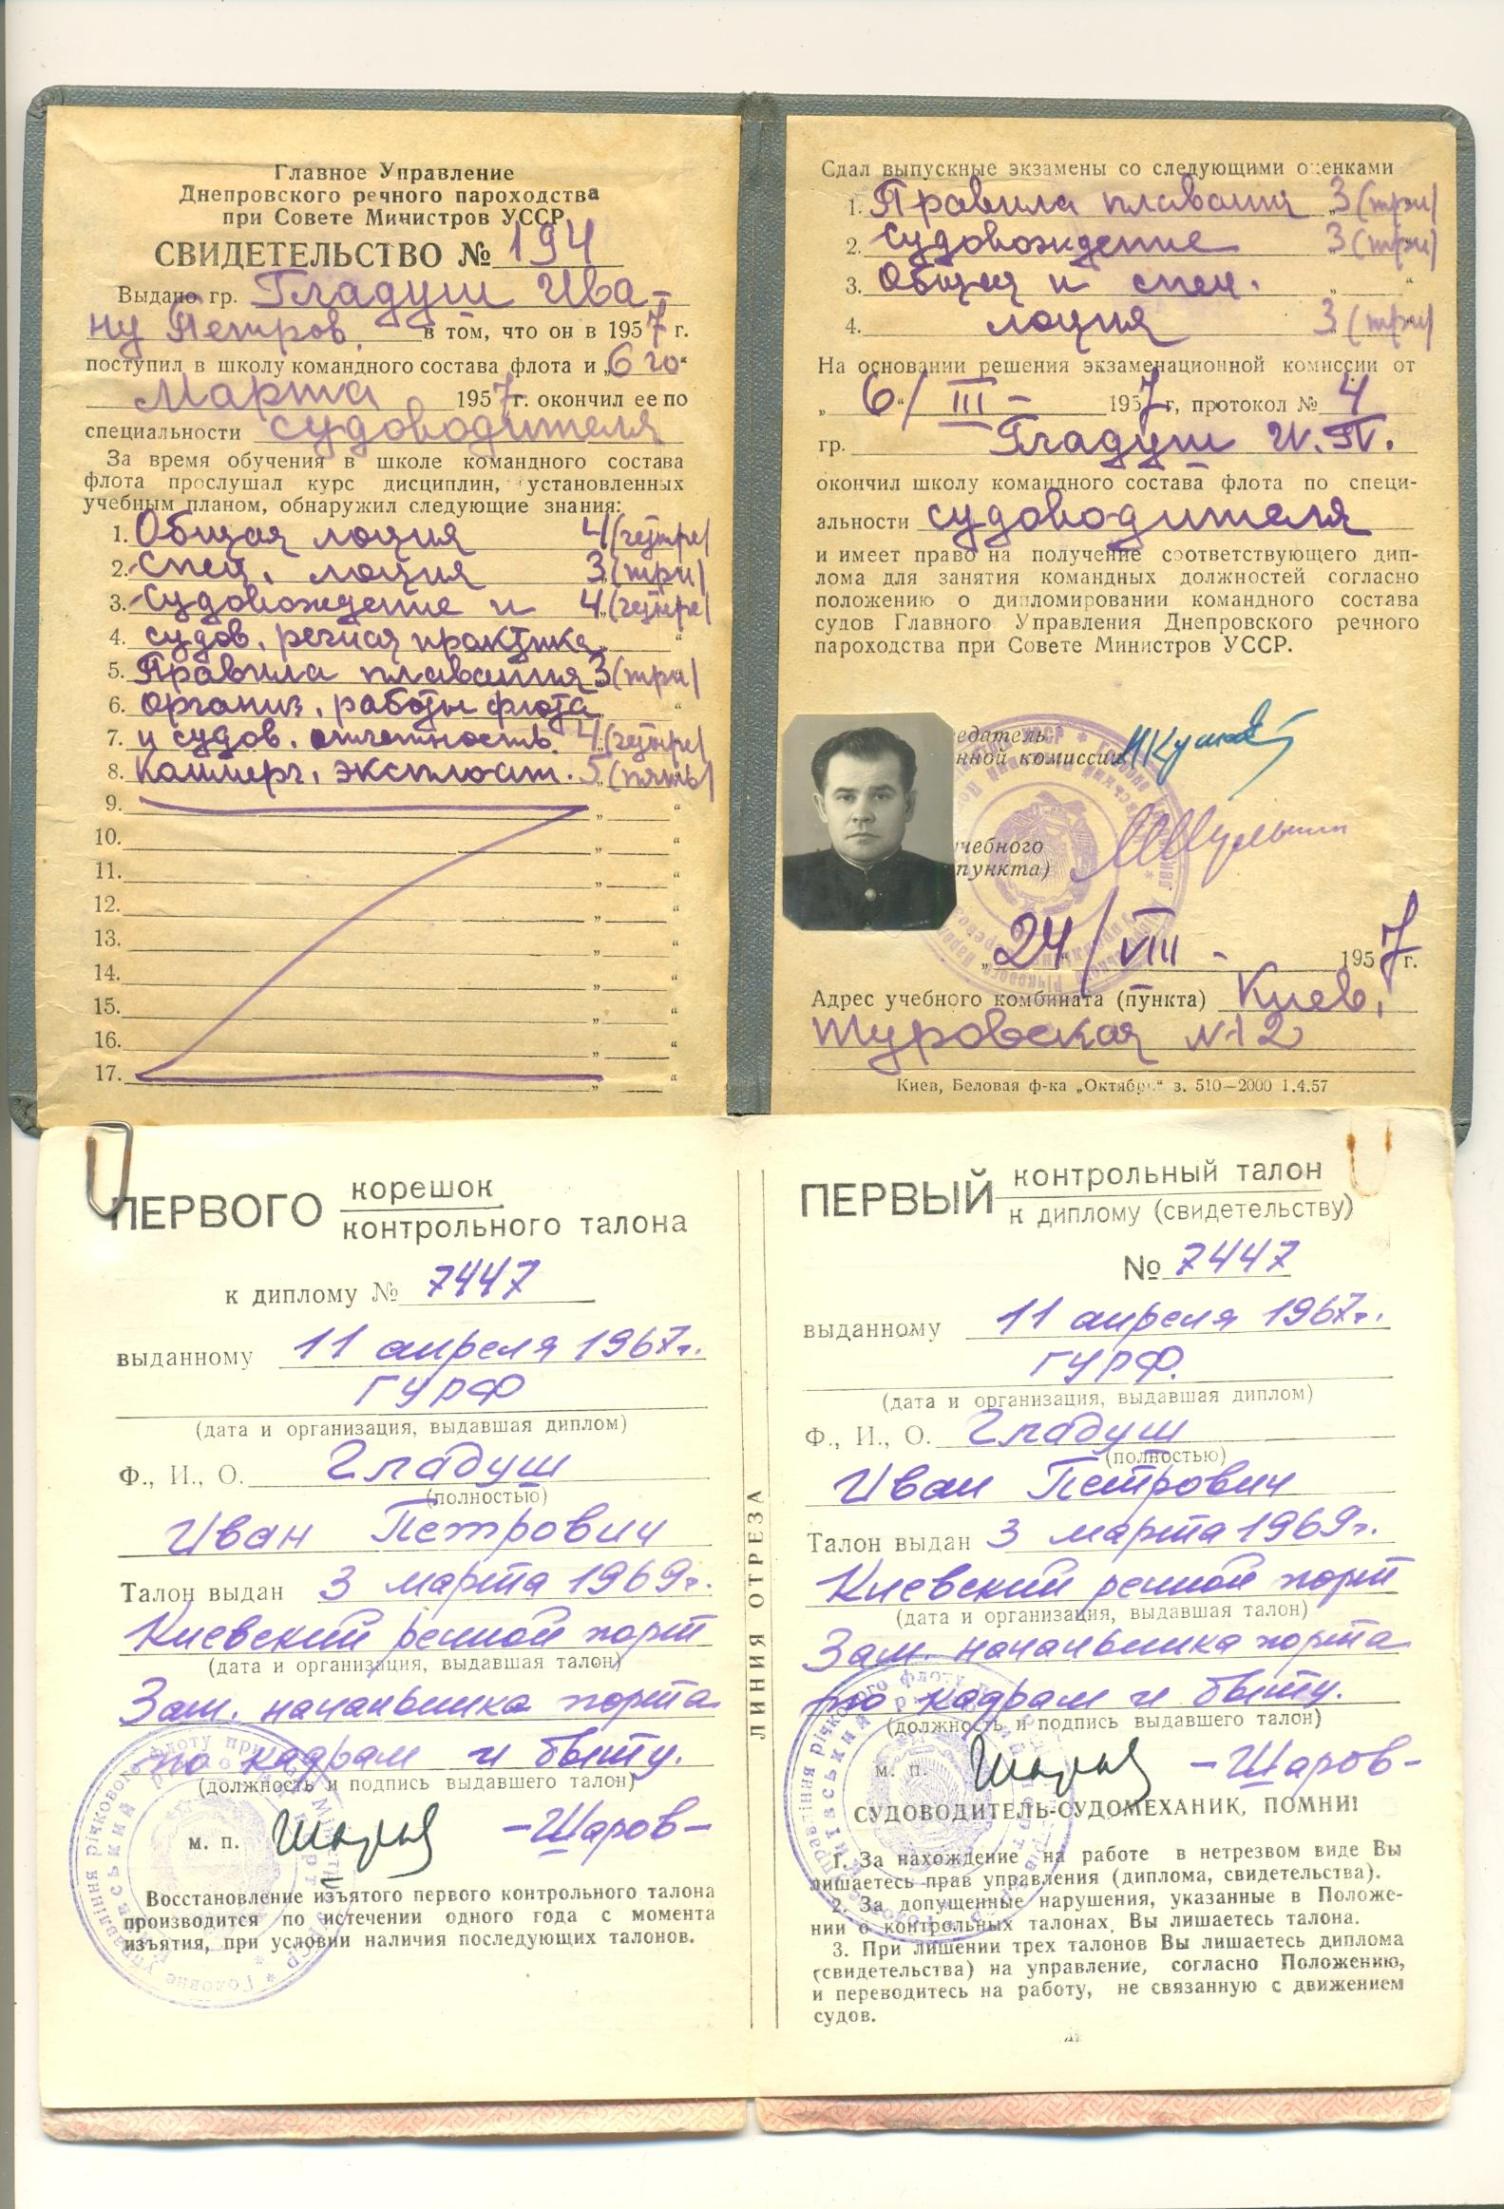 Главное Управление
Днепровского речного пароходства
при Совете Министров УССР
СВИДЕТЕЛЬСТВО № 194
Выдано гр. Гладуш Ива-
ну Петров. в том, что он в 1957 г.
поступил в школу командного состава флота и „6 го“
Марта 1957 г. окончил ее по
специальности судоводителя
За время обучения в школе командного состава
флота прослушал курс дисциплин, установленных
учебным планом, обнаружил следующие знания:
1. Общая лоция 4 (четыре)
2. Спец. лоция 3 (три)
3. Судовождение и 4 (четыре)
4. судов. речная практика „ “
5. Правила плавания 3 (три)
6. организ. работы флота “
7. и судов. отчетность 4 (четыре)
8. Коммерч. эксплоат. 5 (пять)
9. „ “
10. „ “
11. „ “
12. „ “
13. „ “
14. „ “
15. „ “
16. „ “
17. „ “
Сдал выпускные экзамены со следующими оценками
1. Правила плавания „3 (три)
2. Судовождение 3 (три)
3. Общая и спец. „ “
4. лоция 3 (три)
На основании решения экзаменационной комиссии от
„6/“ III - 1957 г, протокол № 4
гр. Гладуш И.П.
окончил школу командного состава флота по специ-
альности судоводителя
и имеет право на получение соответствующего дип-
лома для занятия командных должностей согласно
положению о дипломировании командного состава
судов Главного Управления Днепровского речного
пароходства при Совете Министров УССР.
едатель
нной комиссии
учебного
пункта)
„24/“ VIII - 1957 г.
Адрес учебного комбината (пункта) Киев,
Туровская № 12
Киев, Беловая ф-ка „Октябрь“ з. 510—2000 1.4.57
ПЕРВОГО корешок
контрольного талона
к диплому № 7447
выданному 11 апреля 1967 г.
ГУРФ
(дата и организация, выдавшая диплом)
Ф., И., О. Гладуш
(полностью)
Иван Петрович
Талон выдан 3 марта 1969 г.
Киевский речной порт
(дата и организация, выдавшая талон)
Зам. начальника порта
по кадрам и быту.
(должность и подпись выдавшего талон)
м. п. -Шаров-
Восстановление изъятого первого контрольного талона
производится по истечении одного года с момента
изъятия, при условии наличия последующих талонов.
ЛИНИЯ ОТРЕЗА
ПЕРВЫЙ контрольный талон
к диплому (свидетельству)
№ 7447
выданному 11 апреля 1967 г.
ГУРФ.
(дата и организация, выдавшая диплом)
Ф., И., О. Гладуш
(полностью)
Иван Петрович
Талон выдан 3 марта 1969 г.
Киевский речной порт
(дата и организация, выдавшая талон)
Зам. начальника порта
по кадрам и быту.
(должность и подпись выдавшего талон)
м. п. -Шаров-
СУДОВОДИТЕЛЬ-СУДОМЕХАНИК, ПОМНИ!
1. За нахождение на работе в нетрезвом виде Вы
лишаетесь прав управления (диплома, свидетельства).
2. За допущенные нарушения, указанные в Положе-
нии о контрольных талонах, Вы лишаетесь талона.
3. При лишении трех талонов Вы лишаетесь диплома
(свидетельства) на управление, согласно Положению,
и переводитесь на работу, не связанную с движением
судов.